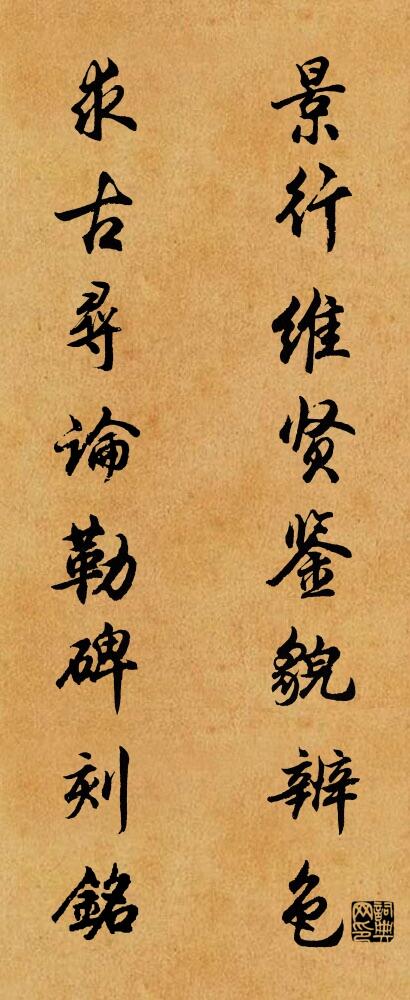 景行维贤鉴貌辨色
求古寻論勒碑刻銘
詞典网印